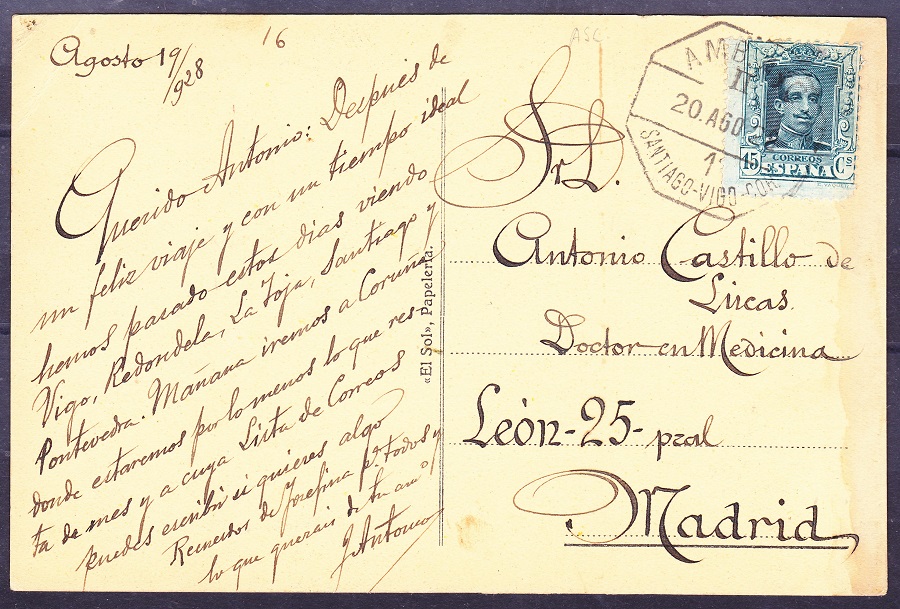 Agosto 19/928
16
ASC
Querido Antonio: Después de
un feliz viaje y con un tiempo ideal
hemos pasado estos días viendo
Vigo, Redondela, La Toja, Santiago y
Pontevedra. Mañana iremos a Coruña
donde estaremos por lo menos lo que res-
ta de mes y a cuya Lista de Correos
puedes escribir si quieres algo
Recuerdos de Josefina pª. todos y
lo que querais de tu amº
Antonio
«El Sol», Papelería.
AMB
20.AGO
SANTIAGO-VIGO-COR
15 CORREOS Cs
ESPAÑA
Sr. D.
Antonio Castillo de
Lucas
Doctor en Medicina
León-25-pral
Madrid